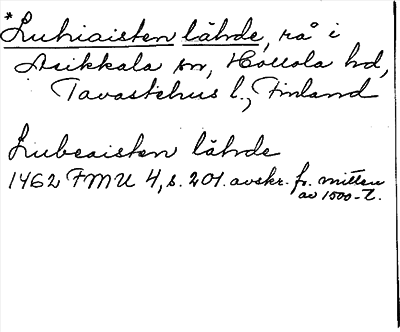 *Luhiaisten lähde, rå i
Asikkala sn, Hollola hd,
Tavastehus l., Finland
Lubeaisten lähde
1462 FMU 4, s. 201. avskr. fr. mitten
av 1500-t.